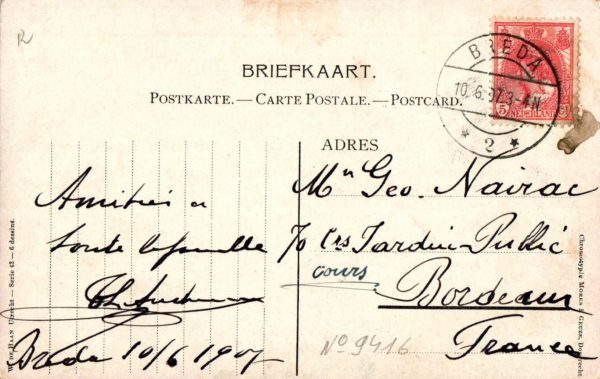 R
BRIEFKAART.
POSTKARTE. — CARTE POSTALE. — POSTCARD.
BREDA
10.6.07.3-4N
* 2 *
5
NEDERLAND
ADRES
Amitiés a
toute la famille
Breda 10/6 1907
Mr Geo. Nairac
70 Crs Jardin-Public
cours
Bordeaux
France
No 9416
W. DE HAAN UTRECHT — Serie 43 — 6 dessins.
Chromotypie MORKS & GEUZE, DORDRECHT